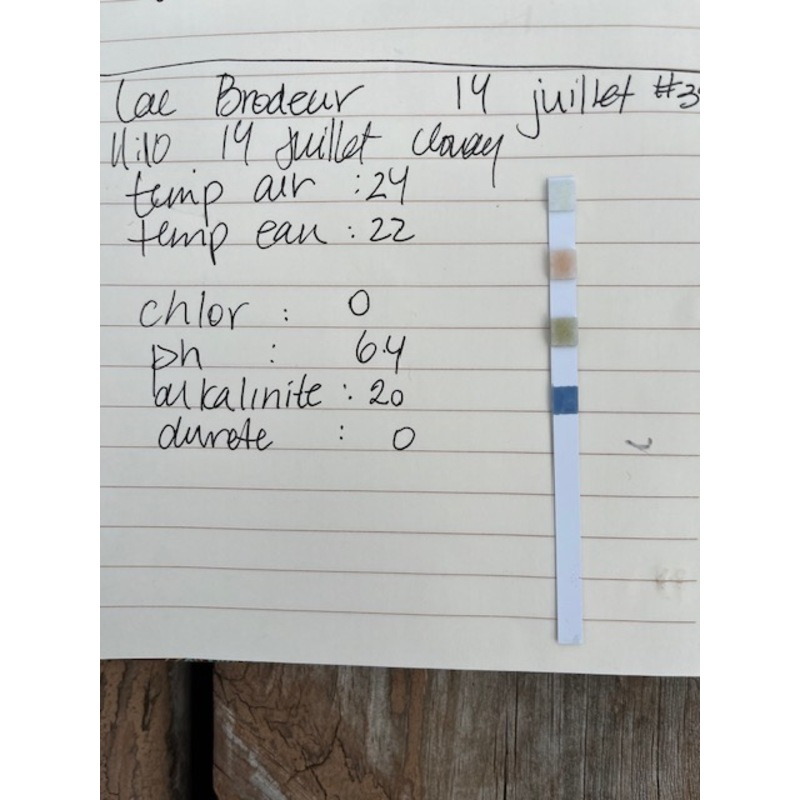 Lac Brodeur 14 juillet #3
11:10 14 juillet cloudy
temp air : 24
temp eau : 22
chlor : 0
ph : 6.4
alkalinite : 20
durete : 0